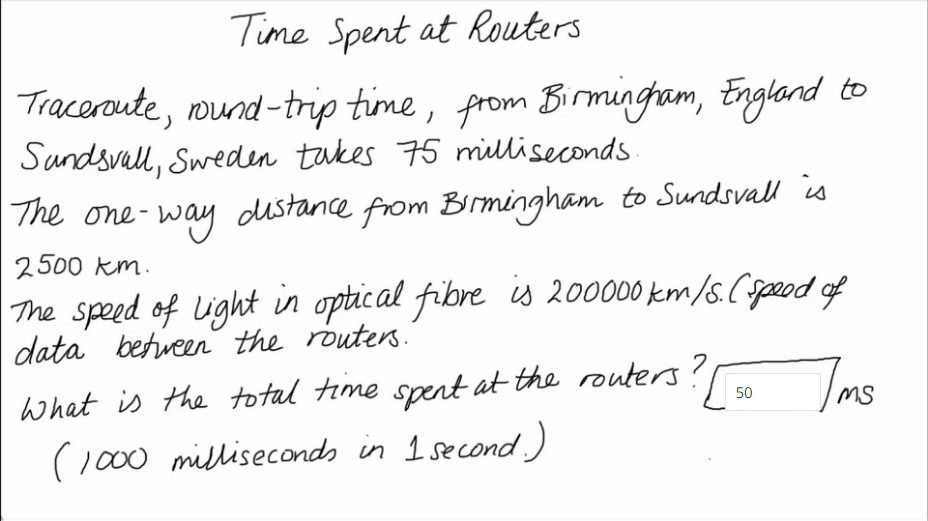 Time Spent at Routers
Traceroute, round-trip time, from Birmingham, England to
Sundsvall, Sweden takes 75 milliseconds.
The one-way distance from Birmingham to Sundsvall is
2500 km.
The speed of light in optical fibre is 200000 km/s. (speed of
data between the routers.
What is the total time spent at the routers? 50 ms
(1000 milliseconds in 1 second.)